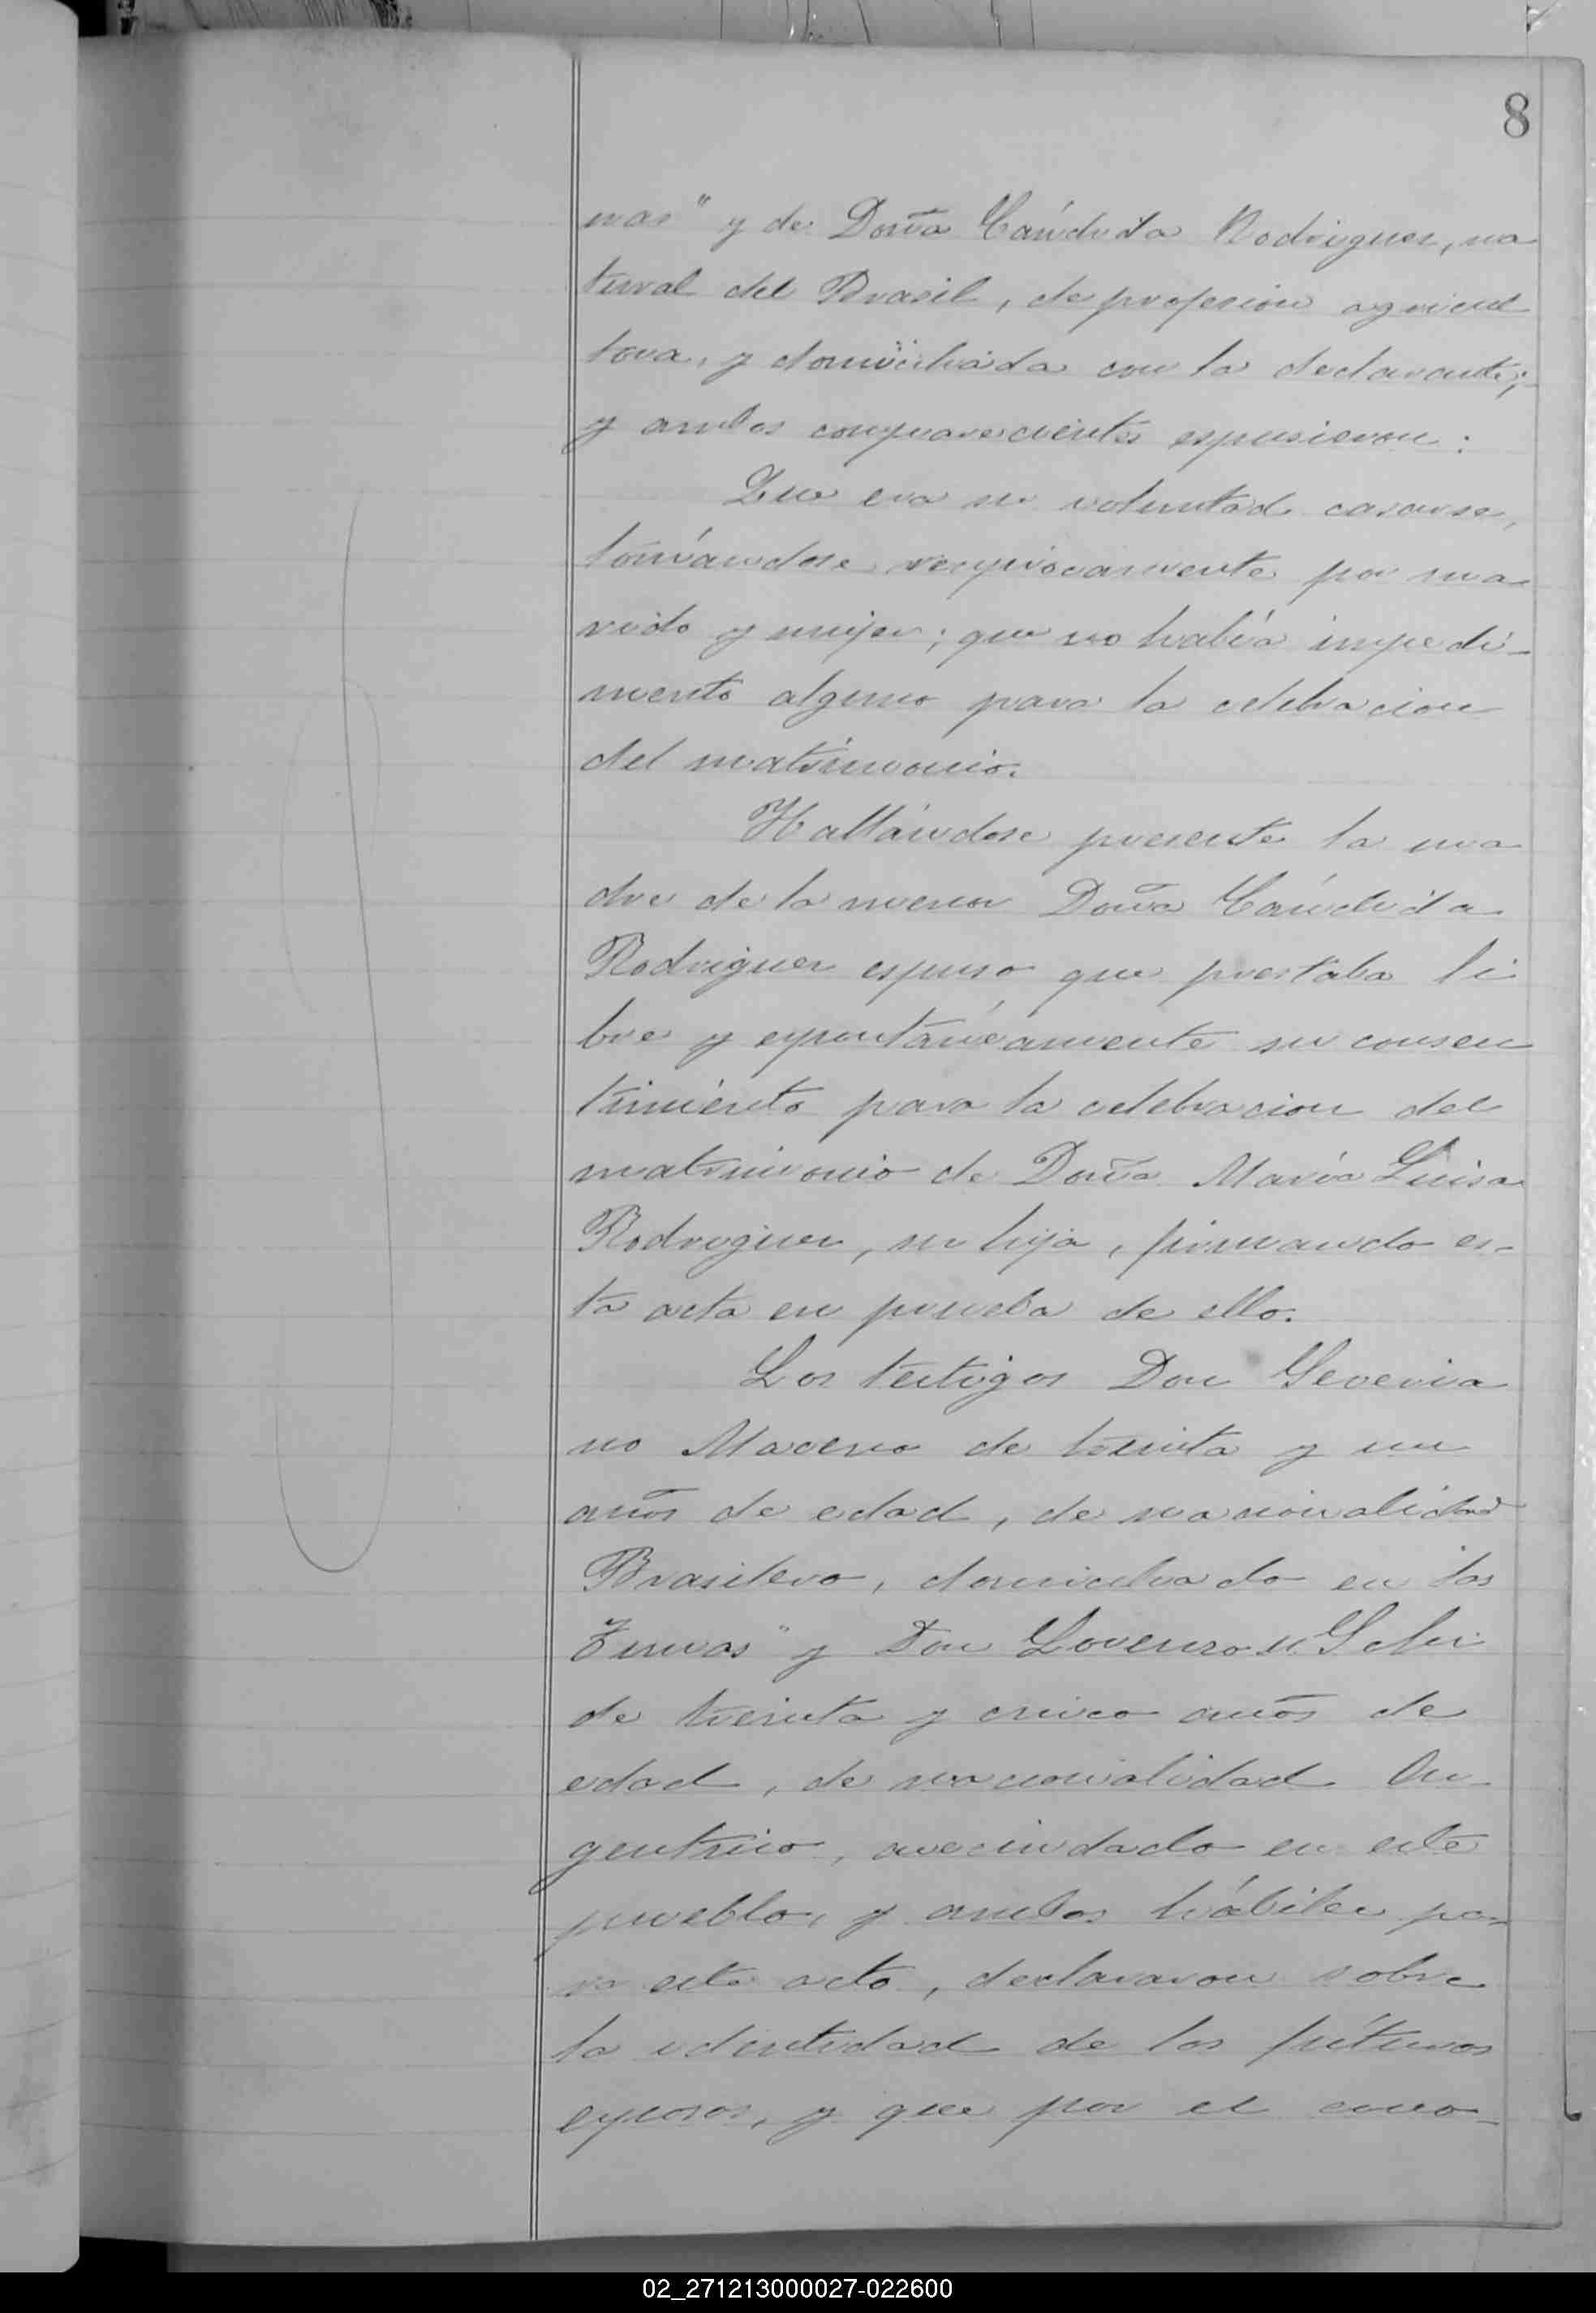 8
nas" y de Doña Cándida Rodriguez, na
tural del Brasil, de profesion agricul
tora, y domiciliada con la declarante;
y ambos comparecientes espusieron:
Que era su voluntad casarse,
tomándose reciprocamente por ma
rido y mujer; que no había impedi-
mento alguno para la celebracion
del matrimonio.
Hallándose presente la ma
dre de la menor Doña Cándida
Rodriguez espuso que prestaba li
bre y espontáneamente su consen
timiento para la celebracion del
matrimonio de Doña María Luisa
Rodriguez, su hija, firmando es-
ta acta en prueba de ello.
Los testigos Don Severia
no de treinta y un
años de edad, de nacionalidad
Brasilero, domiciliado en las
Tunas" y Don Lorenzo
de treinta y cinco años de
edad, de nacionalidad Ar-
gentino, avecindado en este
pueblo, y ambos hábiles pa-
ra este acto, declararon sobre
la identidad de los fúturos
esposos, y que por el cono-
02_271213000027-022600